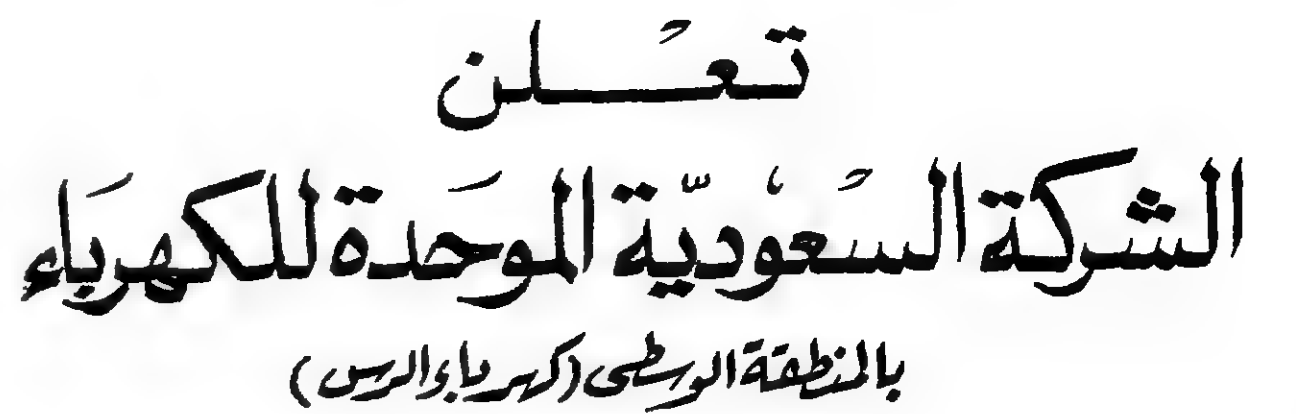 تعلن
الشركة السعودية الموحدة للكهرباء
بالمنطقة الوسطى (كهرباء الرس)